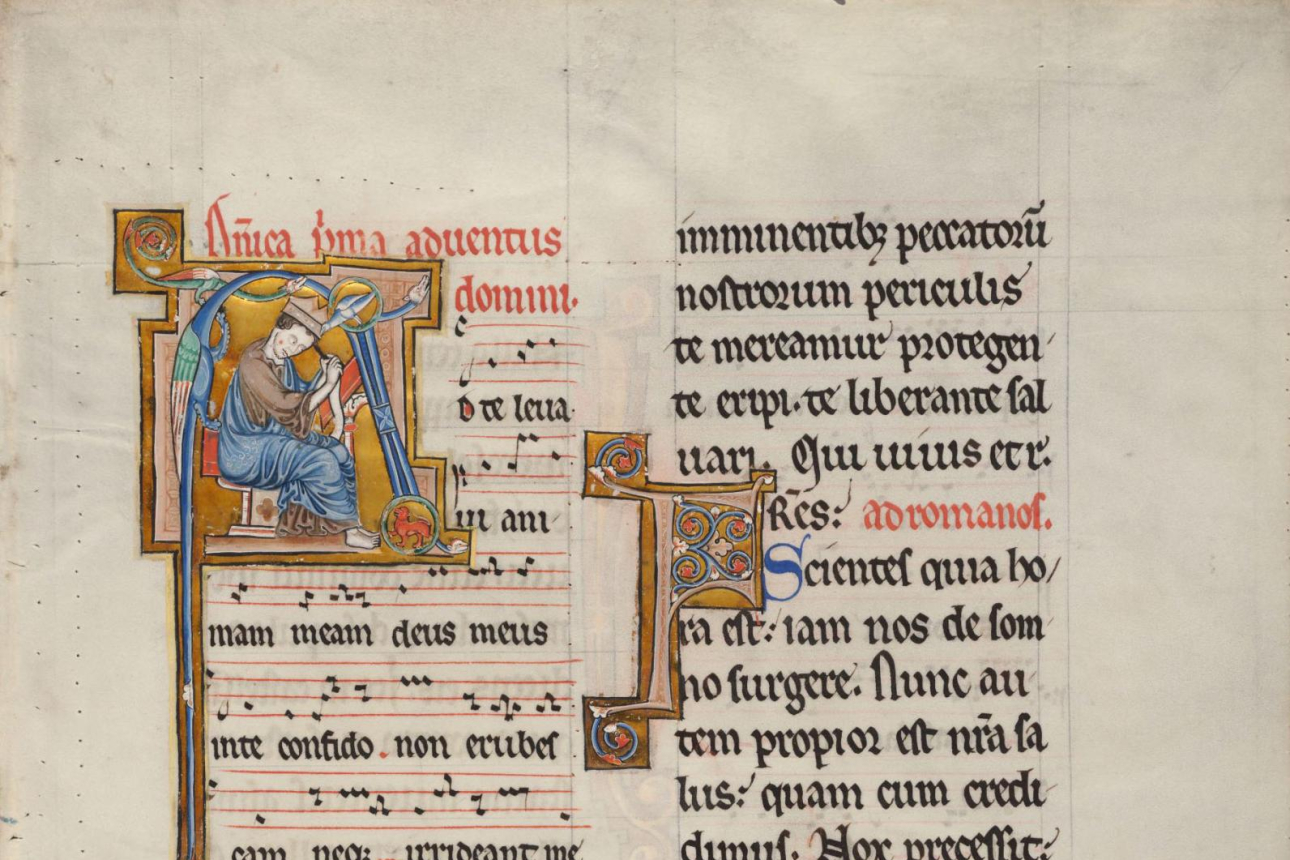 Dn̄ica p'ma aduentus
domini.
D te leua
ui ani
mam meam deus meus
inte confido. non erubes
cam neqꝫ irrideant me
imminentibꝫ peccatorū
nostrorum periculis
te mereamur protegen
te eripi. te liberante sal
uari. Qui uiuis et r.
F Rēs: ad romanos.
Scientes quia ho
ra est: iam nos de som
no surgere. Nunc au
tem propior est nr̄a sa
lus: quam cum credi
dimus. Nox precessit: